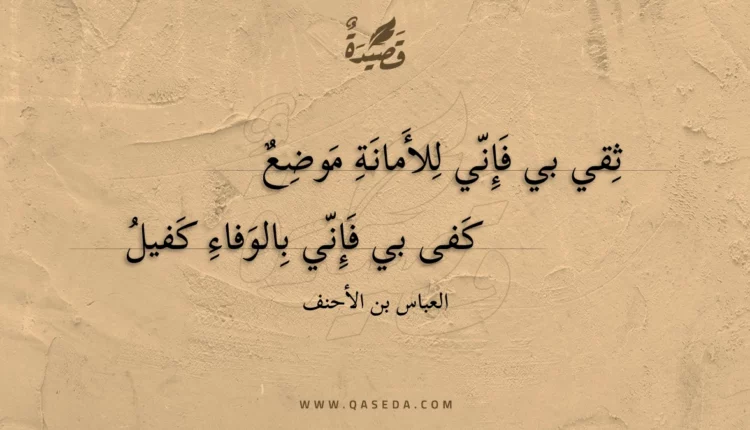 قَصِيدَةٌ
ثِقي بي فَإِنّي لِلأَمانَةِ مَوضِعٌ
كَفى بي فَإِنّي بِالوَفاءِ كَفيلُ
العباس بن الأحنف
WWW.QASEDA.COM